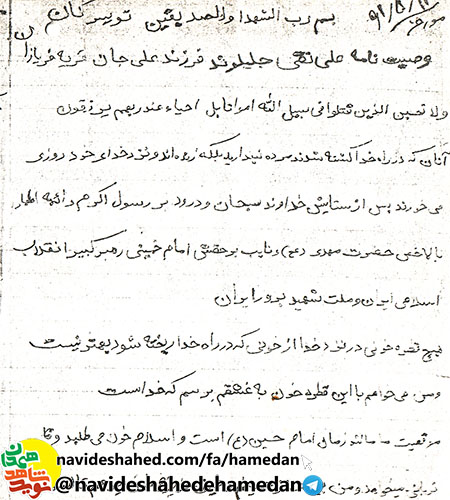 بسم رب الشهدا والصدیقین
وصیت نامه علی نقی جلیلوند فرزند علی جان قریه فربازان
ولا تحسبن الذین قتلوا فی سبیل الله امواتا بل احیاء عند ربهم یرزقون
آنان که در راه خدا کشته شدند مرده نپندارید بلکه زنده اند و نزد خدای خود روزی
می خورند پس از ستایش خداوند سبحان و درود بر رسول اکرم و ائمه اطهار
بالاخص حضرت مهدی (عج) و نایب برحقش امام خمینی رهبر کبیر انقلاب
اسلامی ایران و ملت شهید پرور ایران
هیچ قطره خونی در نزد خدا از خونی که در راه خدا ریخته شود بهتر نیست
ومن می خواهم با این قطره خون به عشقم برسم که خداست
موقعیت ما مانند زمان امام حسین (ع) است و اسلام خون می طلبد و
navideshahed.com/fa/hamedan
@navideshahedehamedan
نوید شاهد
همدان